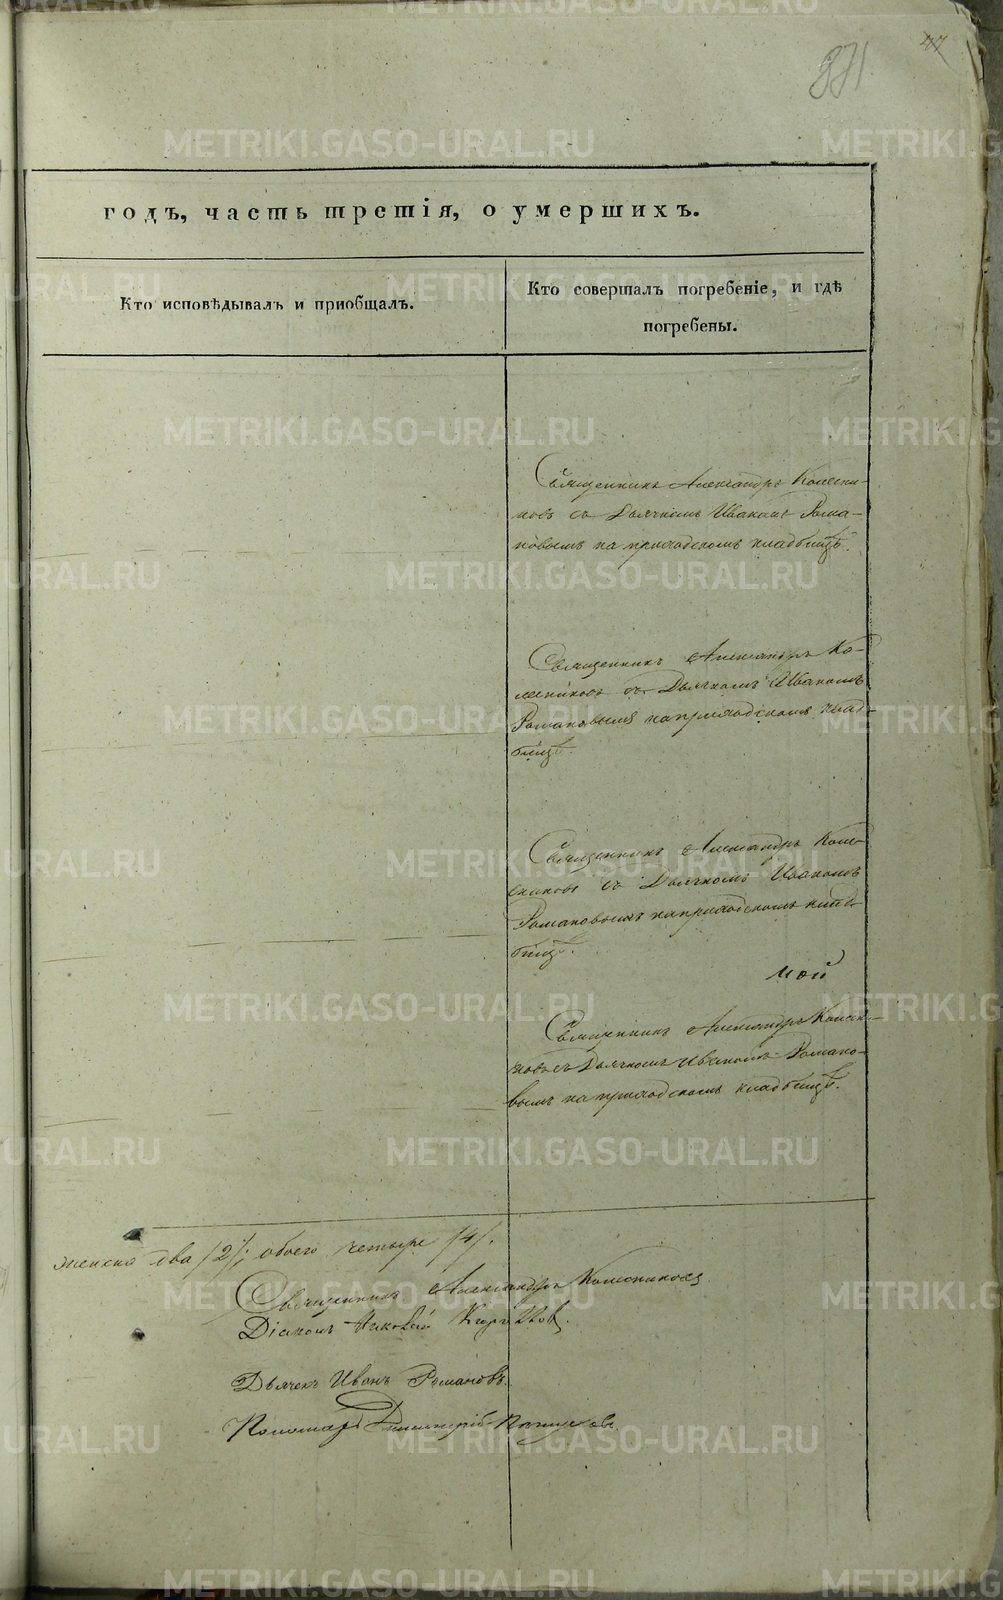 47
871
годъ, часть третія, о умершихъ.
Кто исповѣдывалъ и приобщалъ.
Кто совершалъ погребеніе, и гдѣ
погребены.
Священникъ Александръ Колесни-
ковъ съ Дьячкомъ Иваномъ Рома-
новымъ на приходскомъ кладбищѣ.
Священникъ Александръ Ко-
лесниковъ съ Дьячкомъ Иваномъ
Романовымъ на приходскомъ клад-
бищѣ.
Священникъ Александръ Коле-
сниковъ съ Дьячкомъ Иваномъ
Романовымъ на приходскомъ клад-
бищѣ.
мой
Священникъ Александръ Колесни-
ковъ съ Дьячкомъ Иваномъ Романо-
вымъ на приходскомъ кладбищѣ.
женска два /2/; обоего четыре /4/.
Священникъ Александръ Колесниковъ
Діаконъ Николай
Дьячекъ Иванъ Романовъ.
Пономарь Димитрій
METRIKI.GASO-URAL.RU